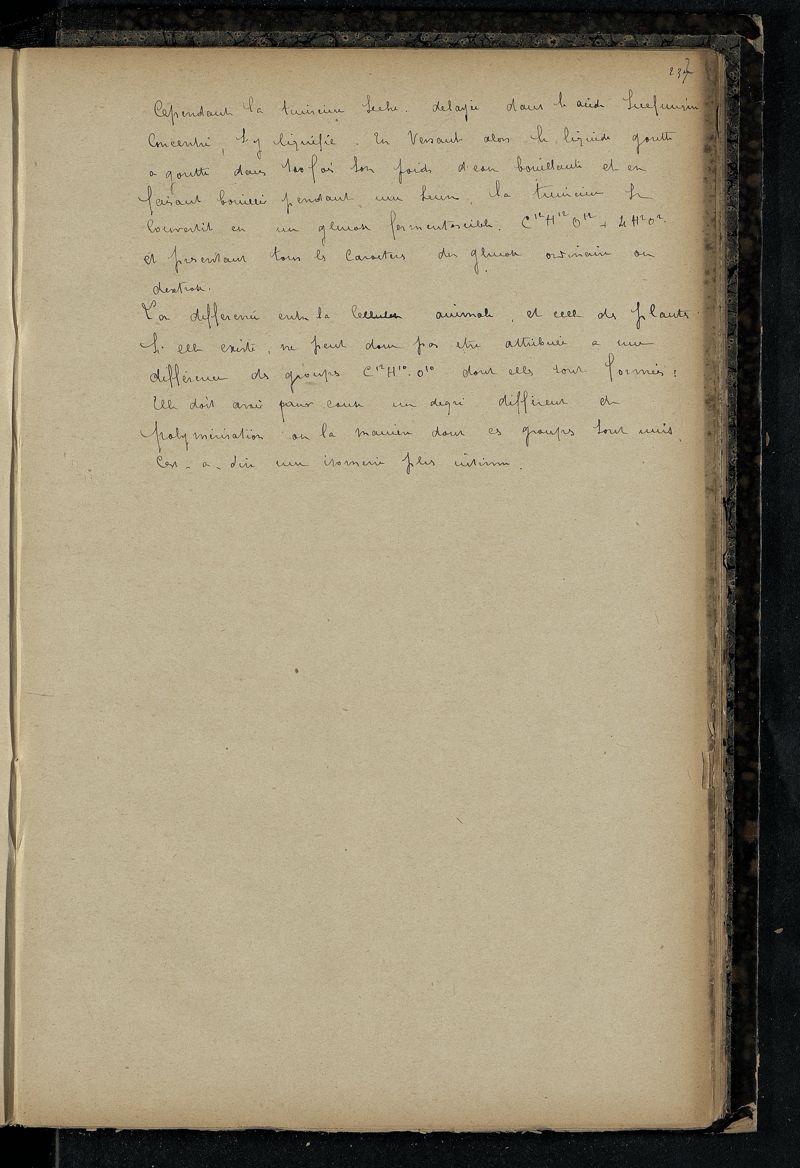 237
Cependant la tunicine seche. delayée dans l'acide sulfurique
Concentré, s'y liquéfie. En versant alors le liquide goutte
a goutte dans 100 fois son poids d'eau bouillante et en
faisant bouillir pendant une heure, la tunicine se
Convertit en un glucose fermentescible. C¹²H¹²O¹² + 2H²O².
et présentant tous les caracteres du glucose ordinaire ou
dextrose.
La difference entre la Cellulose animale, et celle des plantes
S. elle existe, ne peut donc pas etre attribuée a une
différence des groupes C¹²H¹⁰.O¹⁰ dont elles sont formées;
Elle doit avoir pour cause un degré différent de
polymérisation ou la maniere dont ces groupes sont unis,
C'est-a-dire une isomerie plus intime.